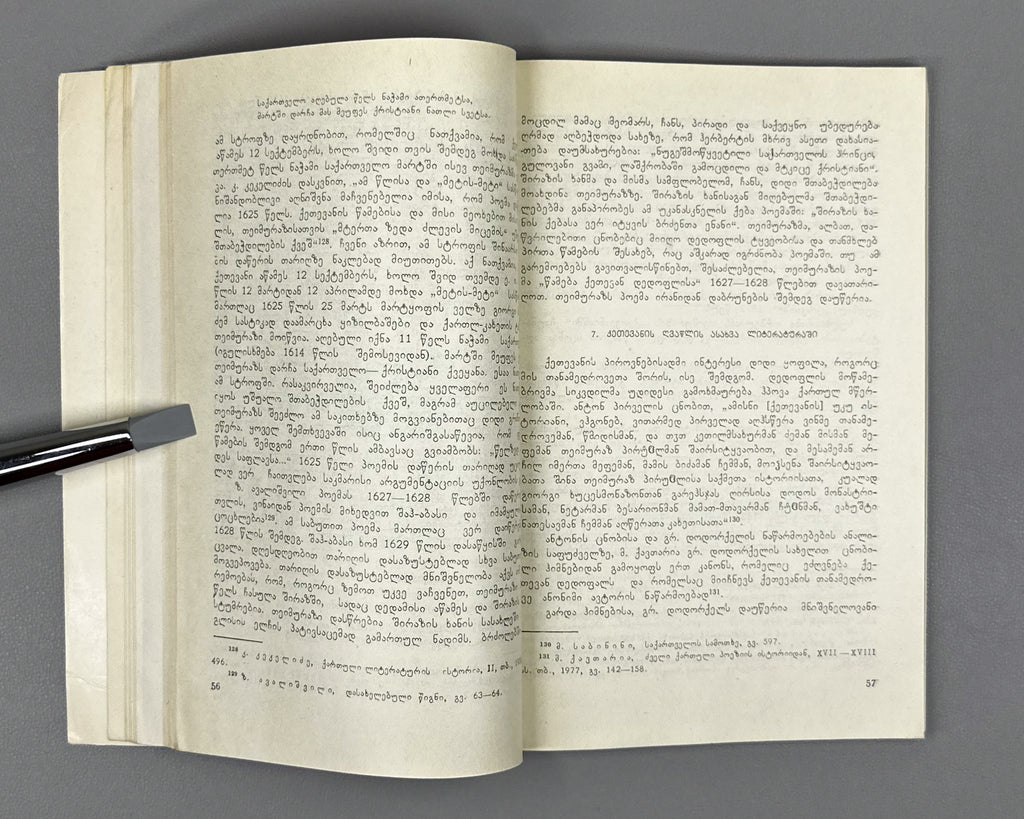 საქართველო აღებულა წელს ნაჰამი ათერთმეტსა,
მარტში დარჩა მას მეუფეს ქრისტიანი ნათლი სვეტსა.
ამ სტროფზე დაყრდნობით, რომელშიც ნათქვამია, რომ
აწამეს 12 სექტემბერს, ხოლო შვიდი თვის შემდეგ
თერთმეტ წელს ნაჰამი საქართველო მარტში ისევ
კ. კეკელიძე დასკვნით, „ამ წლისა და „მეტის-მეტი“
ნიშანდობლივი აღნიშვნა მაჩვენებელია იმისა, რომ პოემა
ლია 1625 წელს. ქეთევანის წამებისა და მისი მეოხებით
ლის, თეიმურაზისათვის „მტერთა ზედა ძლევის მიცემის“
შთაბეჭდილების ქვეშ“128. ჩვენი აზრით, ამ სტროფის
ის დაწერის თარიღზე ნაკლებად მიუთითებს. აქ
ქეთევანი აწამეს 12 სექტემბერს, ხოლო შვიდ თვემდე
წლის 12 მარტიდან 12 აპრილამდე მოხდა „მეტის-მეტი“
მართლაც 1625 წლის 25 მარტს მარტყოფის ველზე
ძემ სასტიკად დაამარცხა ყიზილბაშები და ქართლ-კახეთის
თეიმურაზი მოიწვია. აღებული იქნა 11 წელს ნაჰამი
(იგულისხმება 1614 წლის შემოსევიდან). მარტში
თეიმურაზს დარჩა საქართველო—ქრისტიანი ქვეყანა.
ამ სტროფში. რასაკვირველია, შეიძლება ყველაფერი ეს
იყოს უშუალო შთაბეჭდილების ქვეშ, მაგრამ
თეიმურაზს შეეძლო ამ საკითხებზე მოგვიანებითაც დიდი
ეწერა. ყოველ შემთხვევაში ისიც ანგარიშგასაწევია, რომ
წამების შემდგომ ერთი წლის ამბავსაც გვიამბობს:
დეს საფლავსა...“ 1625 წელი პოემის დაწერის თარიღად
ლად ვერ ჩაითვლება საკმარისი არგუმენტაციის
ზ. ავალიშვილი პოემას 1627—1628 წლებში
თვლის, ვინაიდან პოემის მიხედვით შაჰ-აბასი და
ცოცხლებია129. ამ საბუთით პოემა მართლაც ვერ
1628 წლის შემდეგ. შაჰ-აბასი ხომ 1629 წლის დასაწყისში
ცვალა. დღესდღეობით თარიღის დასაზუსტებლად სხვა
მოგვეპოვება. თარიღის დასაზუსტებლად მნიშვნელობა აქვს
რემოებას, რომ, როგორც ზემოთ უკვე ვაჩვენეთ,
წელს ჩასულა შირაზში, სადაც დედამისი აწამეს და
სტუმრებია. თეიმურაზი დასწრებია შირაზის ხანის
გლისის ელჩის პატივსაცემად გამართულ ნადიმს.
128 კ. კეკელიძე, ქართული ლიტერატურის ისტორია, II, თბ.,
496.
129 ზ. ავალიშვილი, დასახელებული წიგნი, გვ. 63—64.
56
მოცდილ მამაც მეომარს, ჩანს, პირადი და საქვეყნო უბედურება
ღრმად აღბეჭდოდა სახეზე, რომ ჰერბერტის მხრივ ასეთი დახასია-
თება დაუმსახურებია: „ნუგეშმოწყვეტილი საქართველოს პრინცი,
გულოვანი გვამი, ლაშქრობაში გამოცდილი და მტკიცე ქრისტიანი“.
შირაზის ხანმა და მისმა სამფლობელომ, ჩანს, დიდი შთაბეჭდილება
მოახდინა თეიმურაზზე. შირაზის ხანისაგან მიღებულმა შთაბეჭდი-
ლებებმა განაპირობეს ამ უკანასკნელის ქება პოემაში: „შირაზის ხა-
ნის ქებასა ვერ იტყვის ბრძენთა ენანი“. თეიმურაზმა, ალბათ, და-
წვრილებითი ცნობებიც მიიღო დედოფლის ტყვეობისა და თანმხლებ
პირთა წამების შესახებ, რაც აშკარად იგრძნობა პოემაში. თუ ამ
გარემოებებს გავითვალისწინებთ, შესაძლებელია, თეიმურაზის პოე-
მა „წამება ქეთევან დედოფლისა“ 1627—1628 წლებით დავათარი-
ღოთ. თეიმურაზს პოემა ირანიდან დაბრუნების შემდეგ დაუწერია.
7. ქეთევანის ღვაწლის ასახვა ლიტერატურაში
ქეთევანის პიროვნებისადმი ინტერესი დიდი ყოფილა, როგორც
მის თანამედროვეთა შორის, ისე შემდგომ. დედოფლის მოწამე-
ბრივმა სიკვდილმა უდიდესი გამოხმაურება ჰპოვა ქართულ მწერ-
ლობაში. ანტონ პირველის ცნობით, „ამისნი [ქეთევანის] უკუ ის-
ტორიანი, ვჰგონებ, ვითარმედ პირველად აღჰსწერა ვინმე თანამე-
დროვემან, წმიდისმან, და თჳთ კეთილმსახურმან ძემან მისმან მე-
ფემან თეიმურაზ პირჱლმან შაირსიტყვაობით, და მესამემან არ-
ჩილ იმერთა მეფემან, მამის ბიძამან ჩემმან, მოიჴსენა შაირსიტყვაო-
ბათა შინა თეიმურაზ პირჱლისა საქმეთა ისტორიისათა, კუალად
გიორგი ხუცესმონაზონთან გარეჰსჯას ღირსისა დოდოს მონასტრი-
სამან, ნეტარმან ბესარიონმან მამათ-მთავარმან ჩჱნმან, ვახუშტი
ნათესავმან ჩემმან აღწერათა კახეთისათა“130.
ანტონის ცნობისა და გრ. დოდორქელის ნაწარმოებების ანალი-
ზის საფუძველზე, მ. ქავთარია გრ. დოდორქელის სახელით ცნობი-
ლი ჰიმნებიდან გამოყოფს ერთ კანონს, რომელიც ეძღვნება ქე-
თევან დედოფალს და რომელსაც მიიჩნევს ქეთევანის თანამედრო-
ვე ანონიმი ავტორის ნაწარმოებად131.
გარდა ჰიმნებისა, გრ. დოდორქელს დაუწერია მნიშვნელოვანი
130 მ. საბინინი, საქართველოს სამოთხე, გვ. 597.
131 მ. ქავთარია, ძველი ქართული პოეზიის ისტორიიდან, XVII—XVIII
სს. თბ., 1977, გვ. 142—158.
57